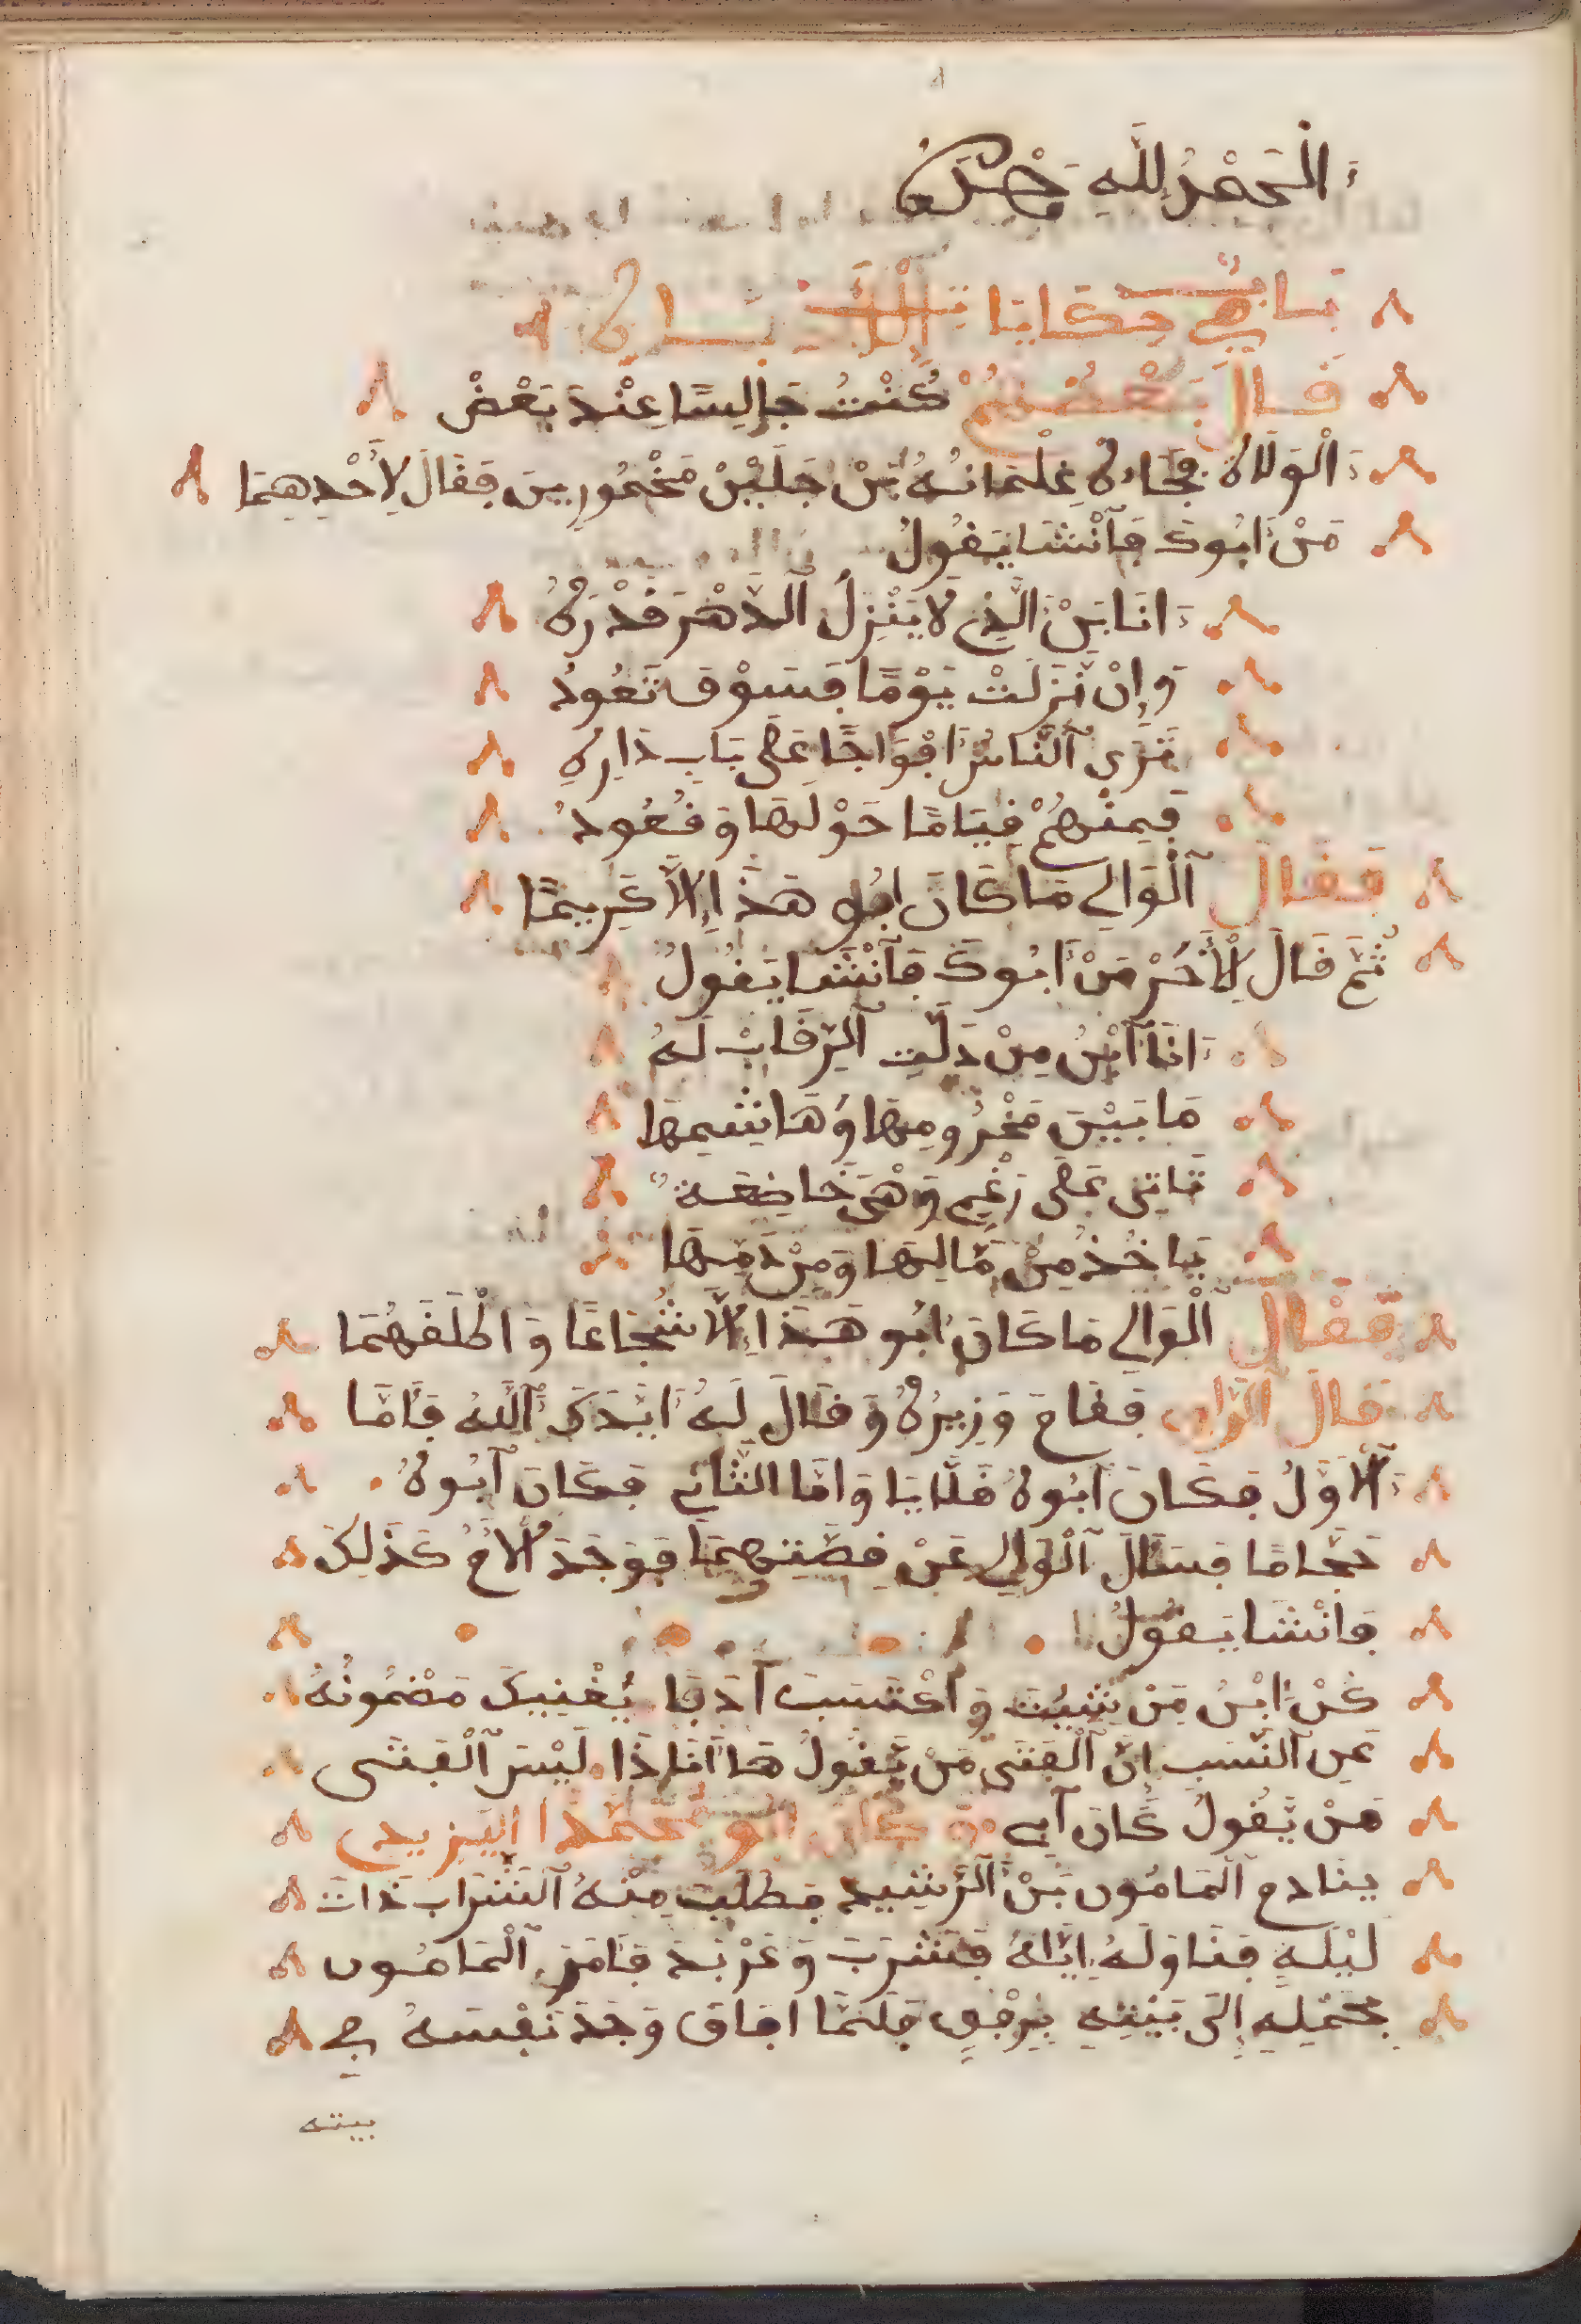 الحمد لله
باب في حكايا
قال بعضهم كنت جالسا عند بعض
الولاة فجاءه غلمانه بن جلين مخمورين فقال لاحدهما
من ابوك فأنشا يقول
انا بن الذي لا ينزل الدهر قدره
وإن نزلت يوما فسوف تعود
ترى الناس افواجا على باب داره
فمنهم قياما حولها وقعود
فقال الوالي ما كان ابو هذا إلا كريما
ثم قال لأخر من أبوك فأنشا يقول
انا ابن من دلت الرقاب له
ما بين مخزومها وهاشمها
تاتى على رغم وهي خاضعة
ياخذ من مالها ومن دمها
فقال الوالي ما كان ابو هذا إلا شجاعا واطلقهما
قال الراوي فقام وزيره وقال له ايدك الله فأما
الاول فكان ابوه فلايا واما الثاني فكان ابوه
حجاما فسال الوالي عن قصتهما فوجد الأم كذلك
فانشا يقول
كن ابن من شيت واكتسب ادبا يغنيك مضمونه
عن النسب إن الفتى من يقول ها أناذا ليس الفتى
من يقول كان أبي كان ابو محمد اليزيدي
ينادم المامون بن الرشيد فطلب منه الشراب ذات
ليلة فناوله إياه فشرب وعربد فأمر المامون
بحمله إلى بيته برفق فلما افاق وجد نفسه في
بيته